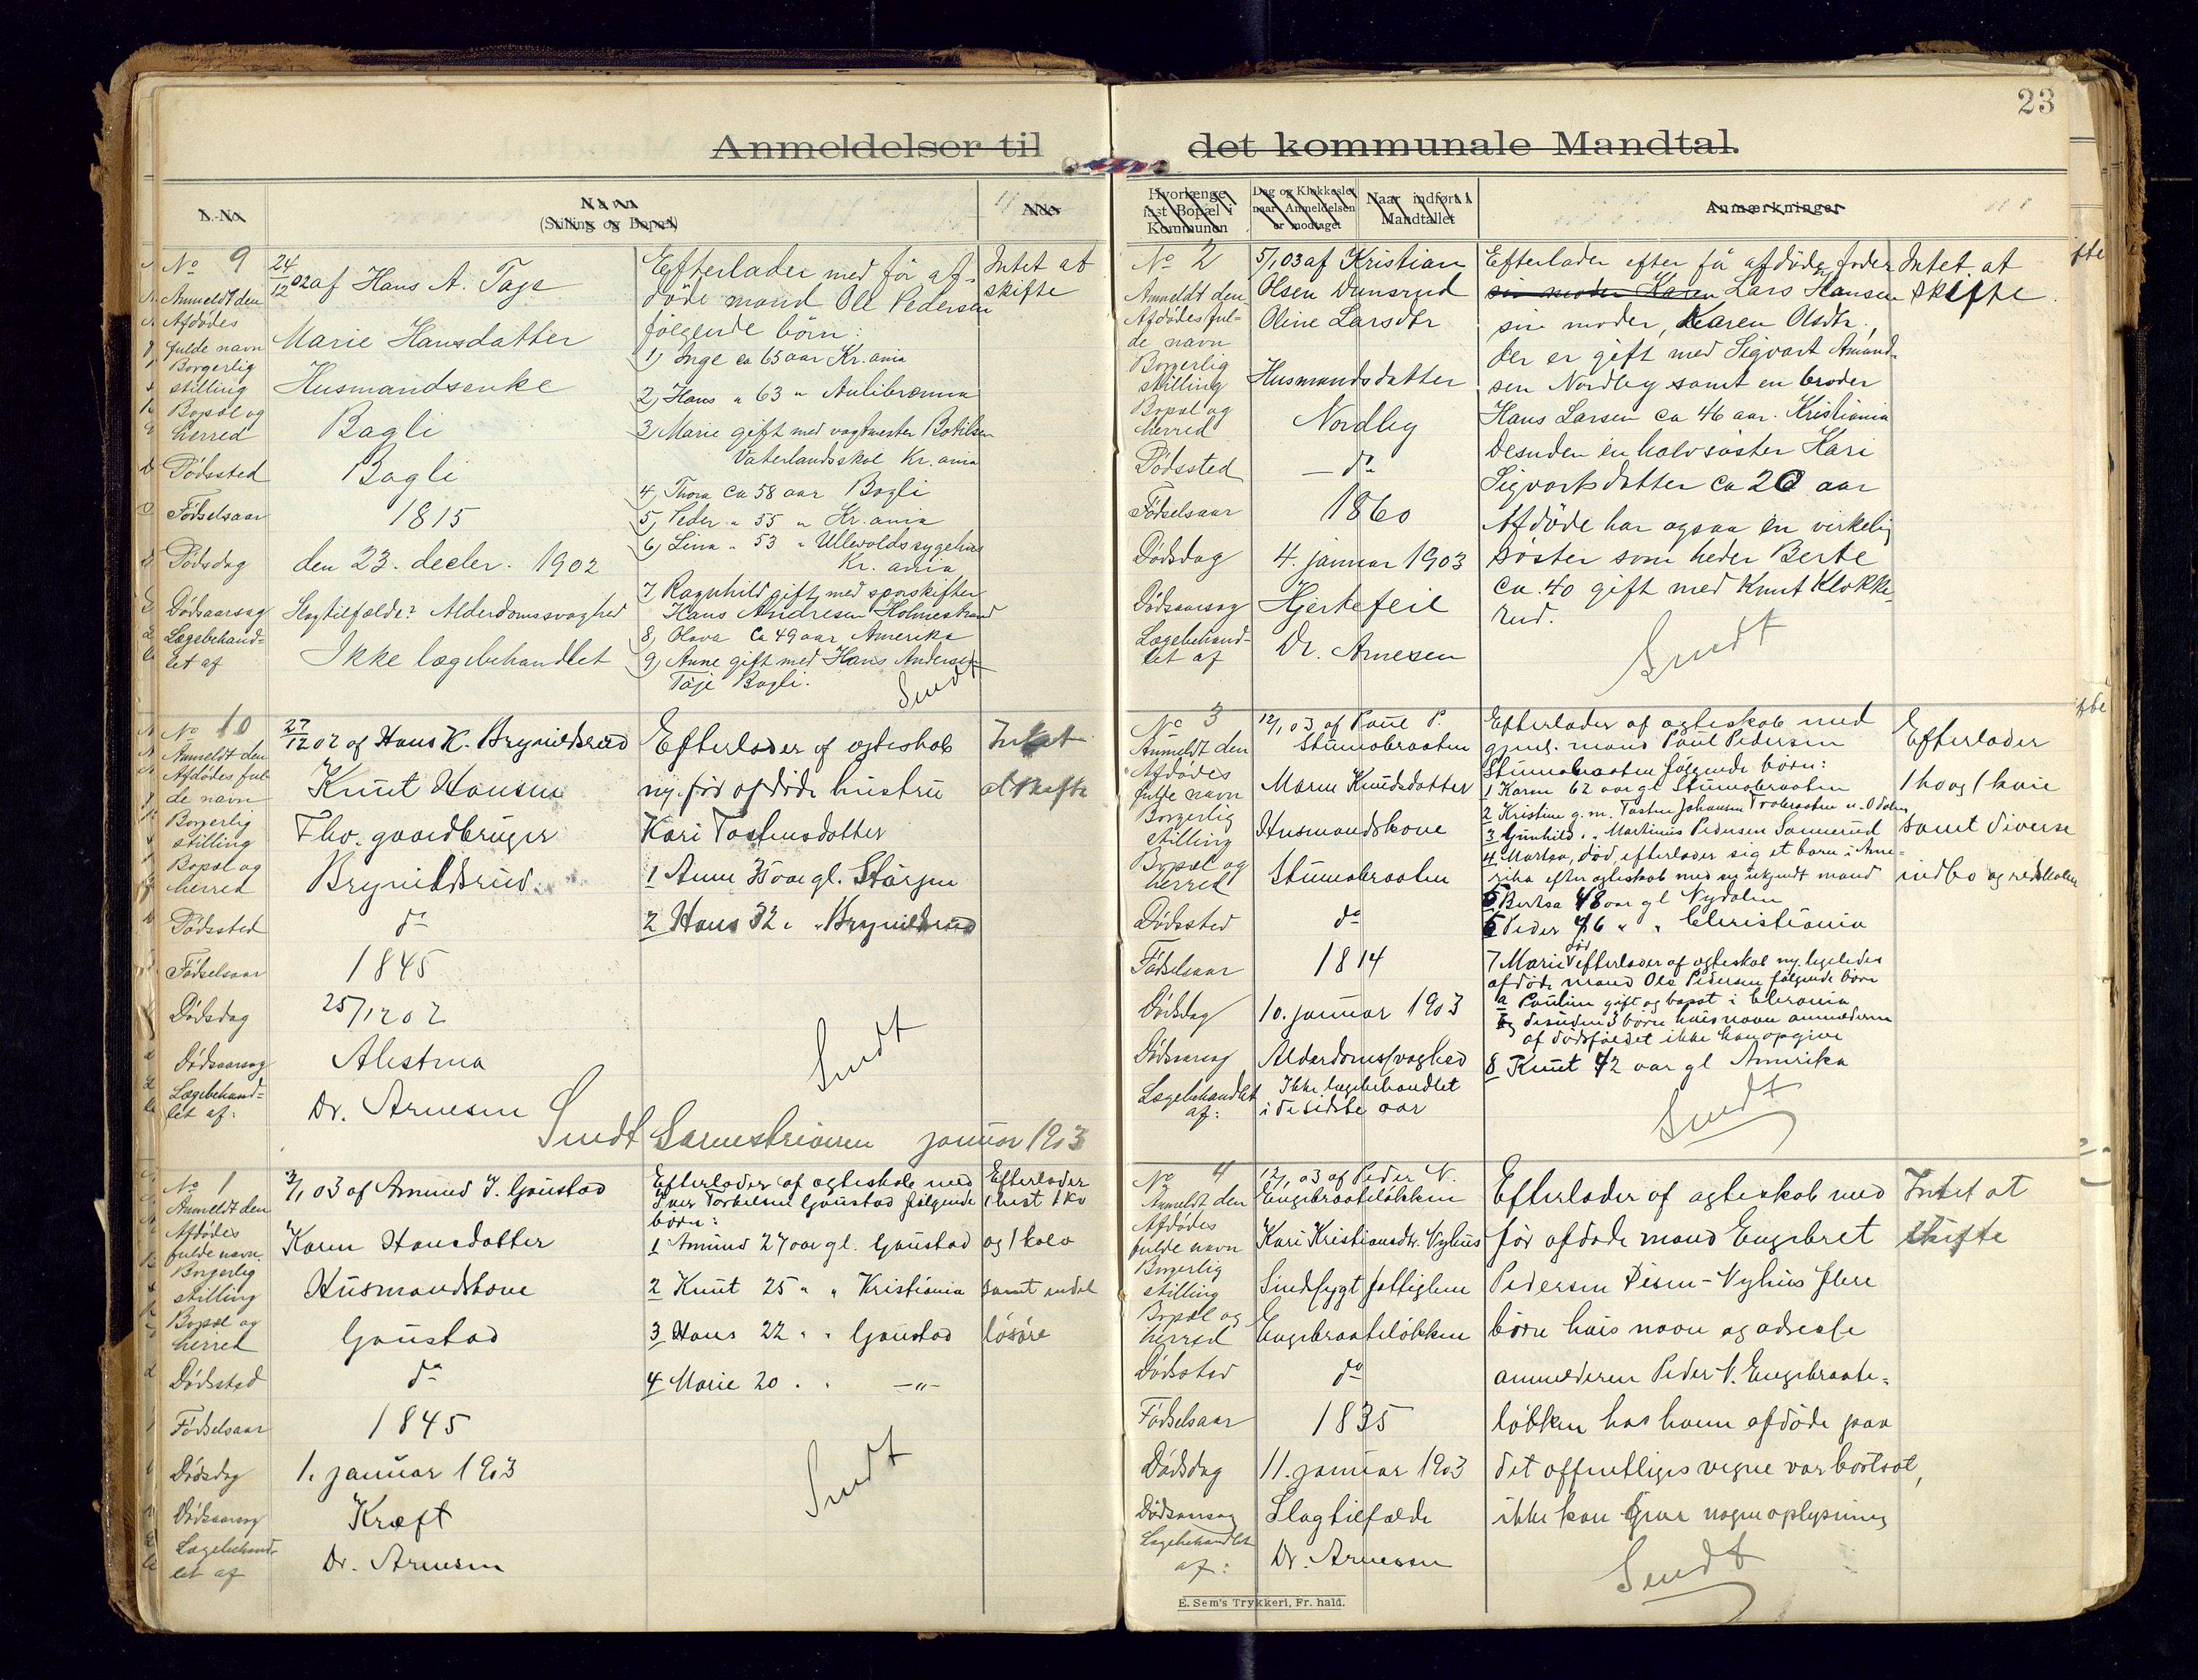 Anmeldelser til
N. No
Navn
(Stilling og Bopæl)
Alder
No 9
Anmeldt den
Afdødes
fulde navn
Borgerlig
stilling
Bopæl og
herred
Dødssted
Fødselsaar
Dødsdag
Dødsaarsag
Lægebehand-
let af
24/12 02 af Hans A. Tage
Marie Hansdatter
Husmandsenke
Bagli
Bagli
1815
den 23. decbr. 1902
Slagtilfælde? Alderdomssvaghed
Ikke lægebehandlet
Efterlader med før af-
døde mand Ole Pedersen
følgende børn:
1, Inge ca 65 aar Kr.ania
2, Hans " 63 "
3, Marie gift med vagtmester
Vaterlandsskol Kr.ania
4, Thora ca 58 aar Bagli
5, Peder " 55 " Kr.ania
6, Lina " 53 " Ullevoldssygehus
Kr. ania
7 Ragnhild gift med sporskifter
Hans Andresen Holmestrand
8, Olava ca 49 aar Amerika
9, Anne gift med Hans Andersen
Taje Bagli.
Sendt
Intet at
skifte
No 10
Anmeldt den
Afdødes ful-
de navn
Borgerlig
stilling
Bopæl og
herred
Dødssted
Fødselsaar
Dødsdag
Dødsaarsag
Lægebehand=
let af:
27/12 02 af Hans K. Brynildsrud
Knut Hansen
Fhv. gaardbruger
Brynildsrud
do
1845
25/12 02
Dr. Arnesen
Efterlader af ægteskab
m. før afdøde hustru
Kari Tostensdatter
1 Anne 35 aar gl.
2 Hans 32 " " Brynildsrud
Sendt
Intet
at skifte
Sendt Sorenskriveren januar 1903
No 1
Anmeldt den
Afdødes
fulde navn
Borgerlig
stilling
Bopæl og
herred
Dødssted
Fødselsaar
Dødsdag
Dødsaarsag
Lægebehand-
let af
3/1 03 af Amund I. Gaustad
Karen Hansdatter
Husmandskone
Gaustad
do
1845
1. januar 1903
Kræft
Dr. Arnesen
Efterlader af ægteskab med
Iver Torkelsen Gaustad følgende
børn:
1 Amund 27 aar gl. Gaustad
2 Knut 25 " " Kristiania
3 Hans 22 " " Gaustad
4 Marie 20 " " —"—
Sendt
Efterlader
1 hest 1 ko
og 1 kalv
samt endel
løsøre
23
det kommunale Mandtal.
Hvorlænge
fast Bopæl i
Kommunen
Dag og Klokkeslet
naar Anmeldelsen
er modtaget
Naar indført i
Mandtallet
Anmærkninger
No 2
Anmeldt den
Afdødes ful-
de navn
Borgerlig
stilling
Bopæl og
herred
Dødssted
Fødselsaar
Dødsdag
Dødsaarsag
Lægebehand-
let af
5/1 03 af Kristian
Olsen Dunsrud
Oline Larsdtr
Husmandsdatter
Nordby
— do
1860
4. januar 1903
Hjertefeil
Dr. Arnesen
Efterlader efter få afdøde fader
sin moder Karen Lars Hansen
sin moder, Karen Olsdtr.,
der er gift med Sigvart Amund-
sen Nordby samt en broder
Hans Larsen ca 46 aar. Kristiania
Desuden en halvsøster Kari
Sigvartsdatter ca 20 aar
Afdøde har ogsaa en virkelig
søster som heder Berte
ca. 40 gift med Knut Klokke-
rud.
Sendt
Intet at
skifte.
No 3
Anmeldt den
Afdødes
fulde navn
Borgerlig
stilling
Bopæl og
herred
Dødssted
Fødselsaar
Dødsdag
Dødsaarsag
Lægebehandlet
af:
12/1 03 af Paul P.
Stumobraaten
Maren Knudsdatter
Husmandskone
Stumobraaten
do
1814
10. januar 1903
Alderdomssvaghed
Ikke lægebehandlet
i de sidste aar
Efterlader af ægteskab med
gjenl. mand Paul Pedersen
Stumobraaten følgende børn:
1 Karen 62 aar gl Stumobraaten
2 Kristine g. m. Tosten Johansen
3 Gunhild " " Martinus Pedersen
4 Martha, død, efterlader sig et barn i Ame-
rika efter ægteskab med en ukjendt mand
5 Berthea 48 aar gl Nydalen
6 Peder 46 " " Christiania
7 Marie død efterlader af ægteskab m. ligeledes
afdøde mand Ole Pedersen følgende børn
a Pauline gift og bosat i Chrania
og desuden 3 børn hvis navn anmelderen
af dødsfaldet ikke kan opgive
8 Knut 42 aar gl Amerika
Sendt
Efterlader
1 ko og 1 kvie
samt diverse
indbo og redskaber
No 4
Anmeldt den
Afdødes
fulde navn
Borgerlig
stilling
Bopæl og
herred
Dødssted
Fødselsaar
Dødsdag
Dødsaarsag
Lægebehandlet
af:
12/1 03 af Peder N.
Engebraateløkken
Kari Kristiansdtr. Nyhus
Sindssygt fattiglem
Engebraateløkken
do
1835
11. januar 1903
Slagtilfælde
Dr. Arnesen
Efterlader af ægteskab med
før afdøde mand Engebret
Pedersen Nyhus flere
børn hvis navn og adresse
anmelderen Peder N. Engebraate-
løkken hos hvem afdøde paa
det offentliges vegne var bortsat,
ikke kan give nogen oplysning
Sendt
Intet at
skifte
E. Sem's Trykkeri, Fr. hald.